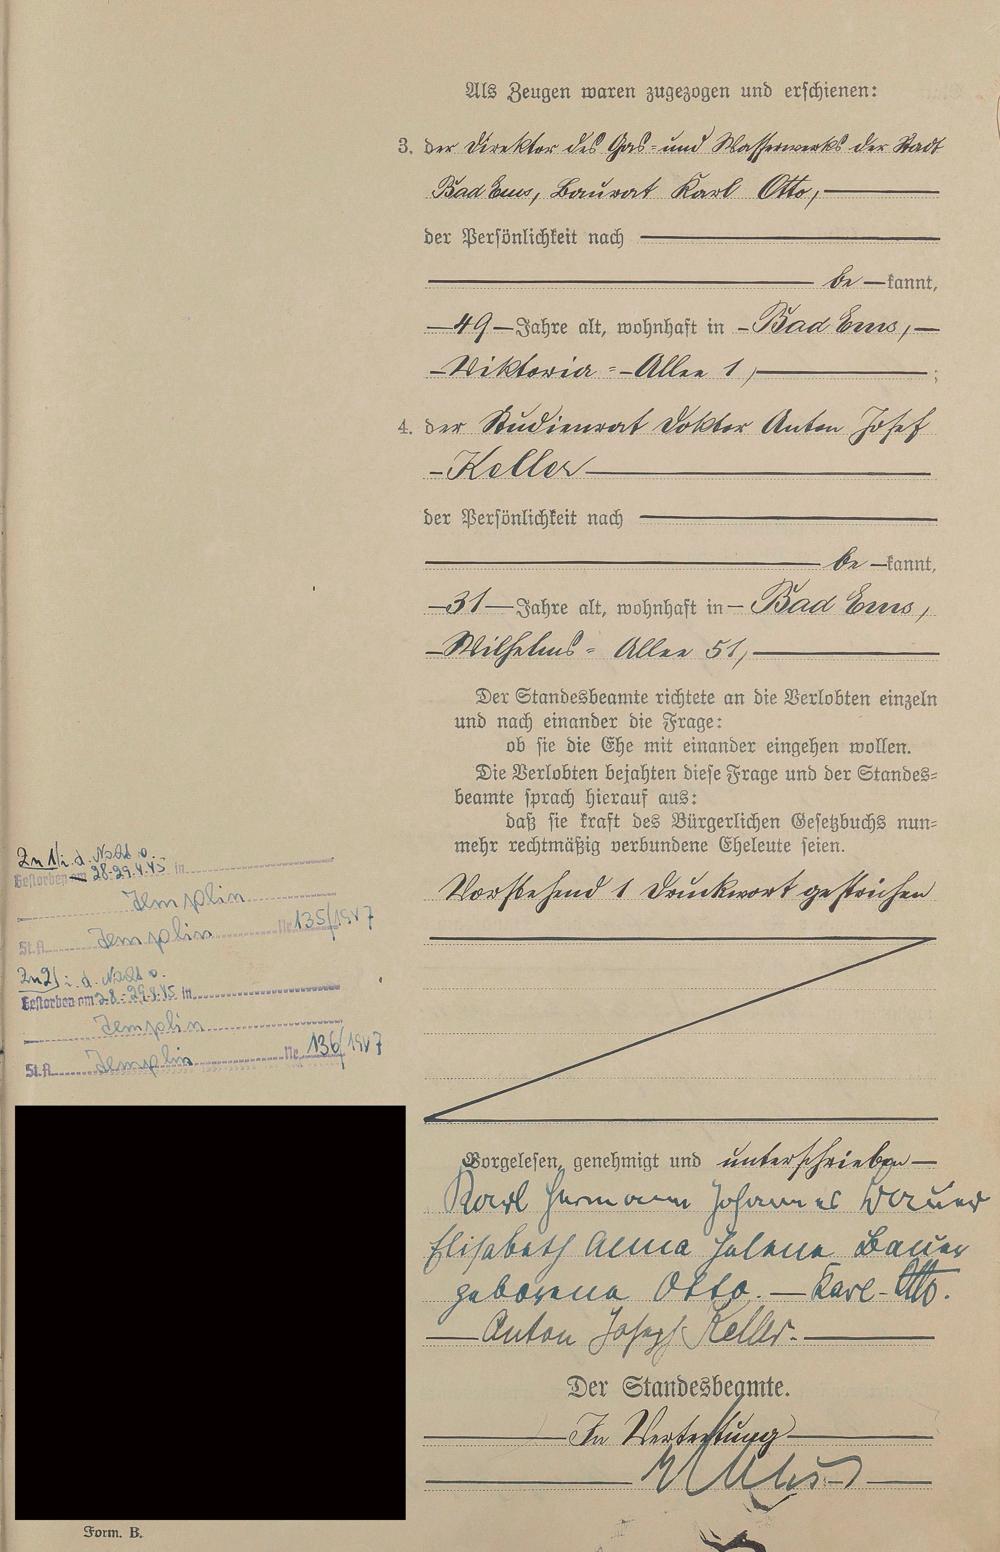 Als Zeugen waren zugezogen und erschienen:
3. der Direktor des Gas- und Wasserwerks der Stadt
Bad Ems, Baurat Karl Otto,
der Persönlichkeit nach
be kannt,
49 Jahre alt, wohnhaft in Bad Ems,
Viktoria-Allee 1, ;
4. der Studienrat Doktor Anton Josef
Keller
der Persönlichkeit nach
be kannt,
31 Jahre alt, wohnhaft in Bad Ems,
Wilhelms-Allee 51,
Der Standesbeamte richtete an die Verlobten einzeln
und nach einander die Frage:
ob sie die Ehe mit einander eingehen wollen.
Die Verlobten bejahten diese Frage und der Standes-
beamte sprach hierauf aus:
daß sie kraft des Bürgerlichen Gesetzbuchs nun-
mehr rechtmäßig verbundene Eheleute seien.
Vorstehend 1 Druckwort gestrichen
Zu 1) i. d. Nacht v.
Gestorben am 28-29.4.45 in
Templin
St.A. Templin Nr. 135/1947
Zu 2) i. d. Nacht v.
Gestorben am 28.-29.4.45 in
Templin
St.A. Templin Nr. 136/1947
Vorgelesen, genehmigt und unterschrieben
Karl Hermann Johannes Bauer
Elisabeth Anna Helene Bauer
geborene Otto. — Karl Otto.
Anton Joseph Keller.
Der Standesbeamte.
In Vertretung
Form. B.